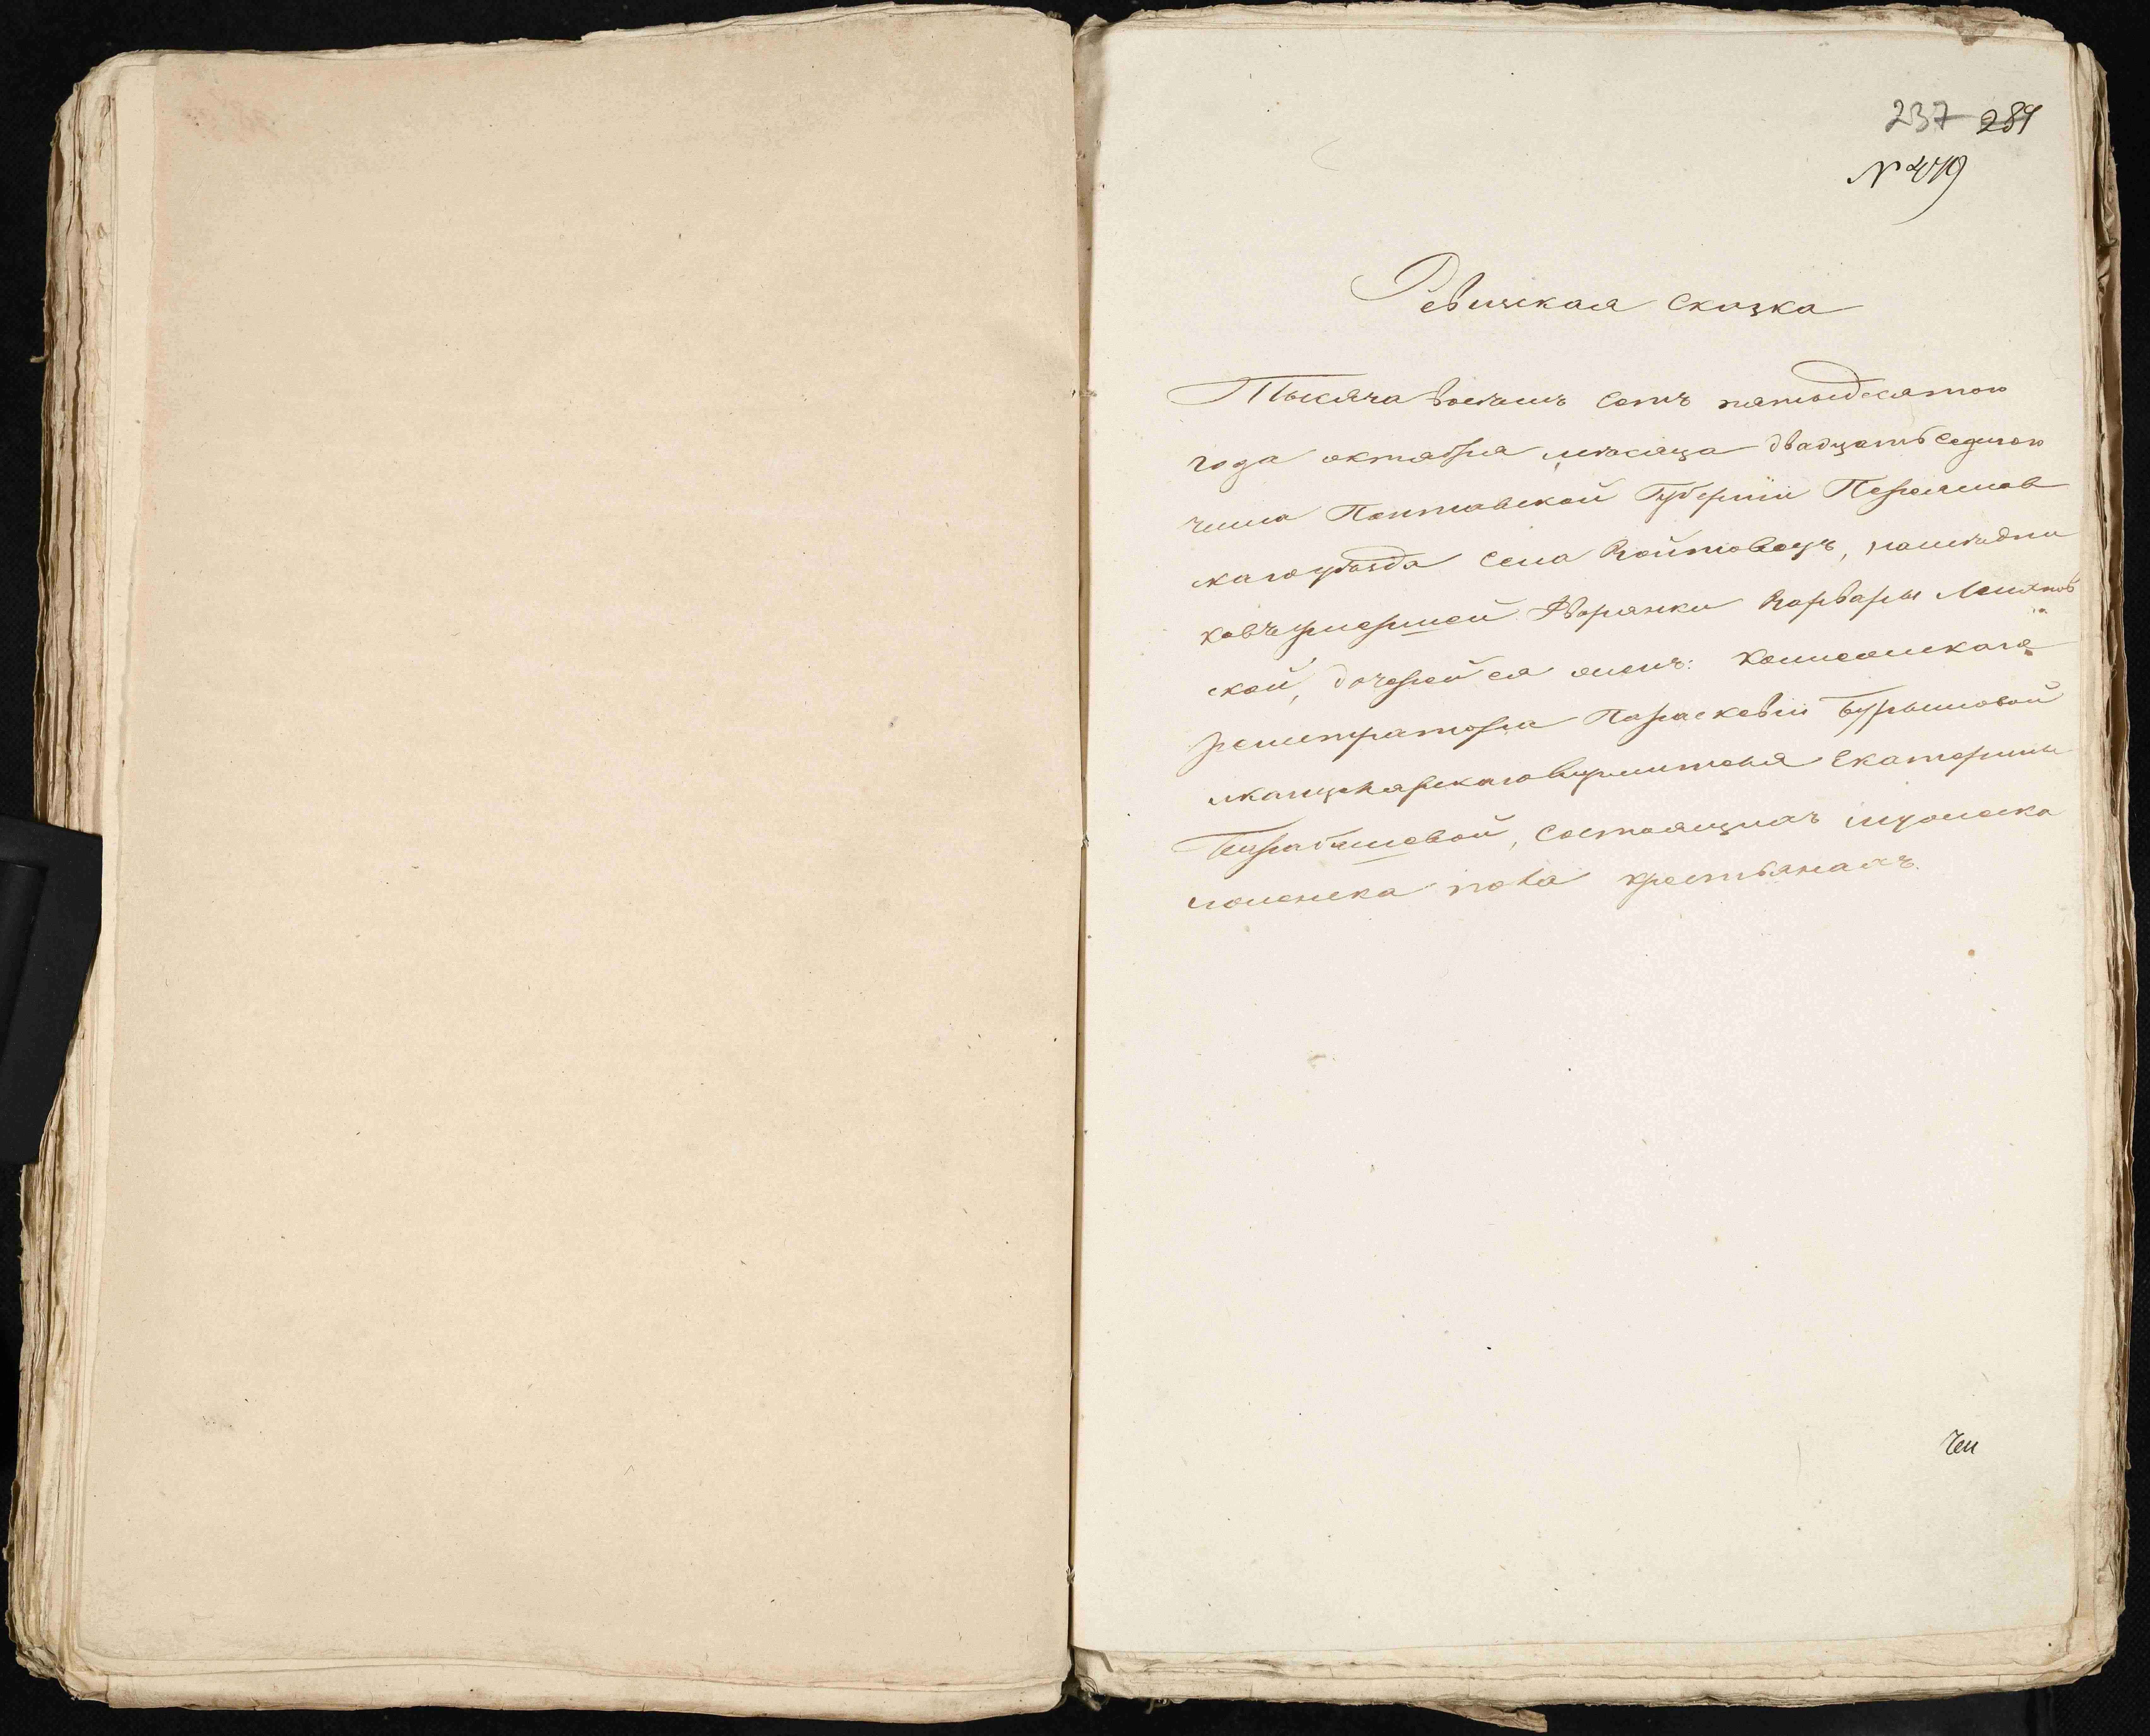 237 289
№ 479
Ревижская сказка
Тысяча восемь сотъ пятьдесятого
года октября месяца двадцать седмого
числа Полтавской Губерніи Переяслов
скаго уѣзда села Войтовецъ, наследни
ковъ умершей Дворянки Варвары
ской, дочерей ея женъ: Колежскаго
регистратора Парасковіи Бурышовой
и канцелярскаго служителя Екатерины
состоящихъ мужеска
и женска пола крестьянахъ.